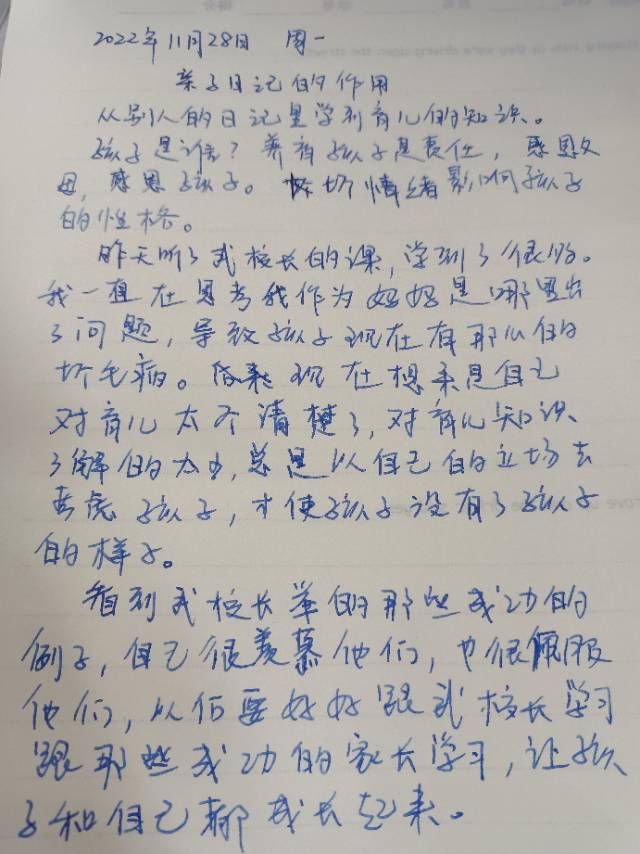 2022年11月28日 周一
亲子日记的作用
从别人的日记里学到育儿的知识。
孩子是谁？养育孩子是责任，感恩父
母，感恩孩子。坏情绪影响孩子
的性格。
昨天听了武校长的课，学到了很多。
我一直在思考我作为妈妈是哪里出
了问题，导致孩子现在有那么的
坏毛病。现在想来是自己
对育儿太不清楚了，对育儿知识
了解的太少，总是以自己的立场去
考虑孩子，才使孩子没有了孩子
的样子。
看到武校长举的那些成功的
例子，自己很羡慕他们，也很佩服
他们，从后要好好跟武校长学习
跟那些成功的家长学习，让孩
子和自己都成长起来。